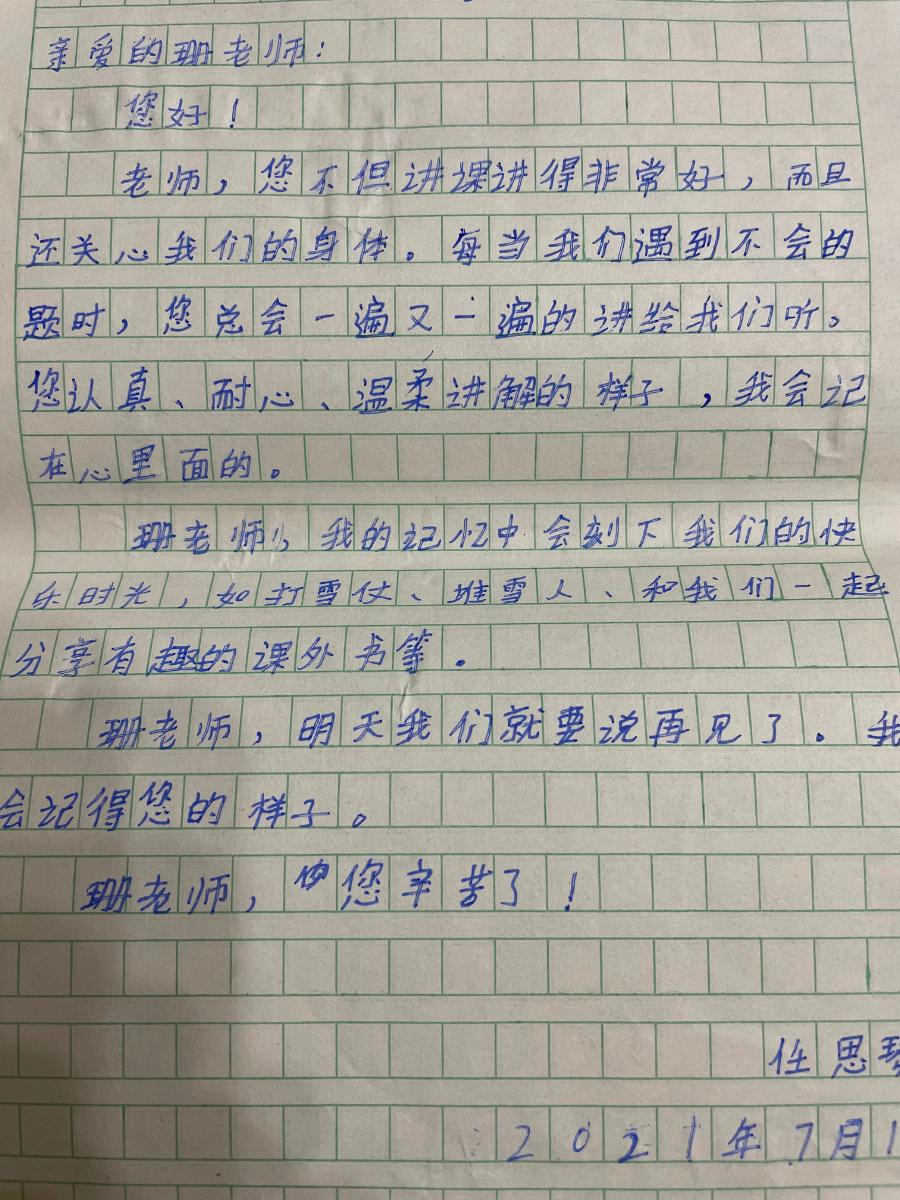 亲爱的珊老师：
您好！
老师，您不但讲课讲得非常好，而且
还关心我们的身体。每当我们遇到不会的
题时，您总会一遍又一遍的讲给我们听。
您认真、耐心、温柔讲解的样子，我会记
在心里面的。
珊老师，我的记忆中会刻下我们的快
乐时光，如打雪仗、堆雪人、和我们一起
分享有趣的课外书等。
珊老师，明天我们就要说再见了。我
会记得您的样子。
珊老师，您辛苦了！
任思
2021年7月1